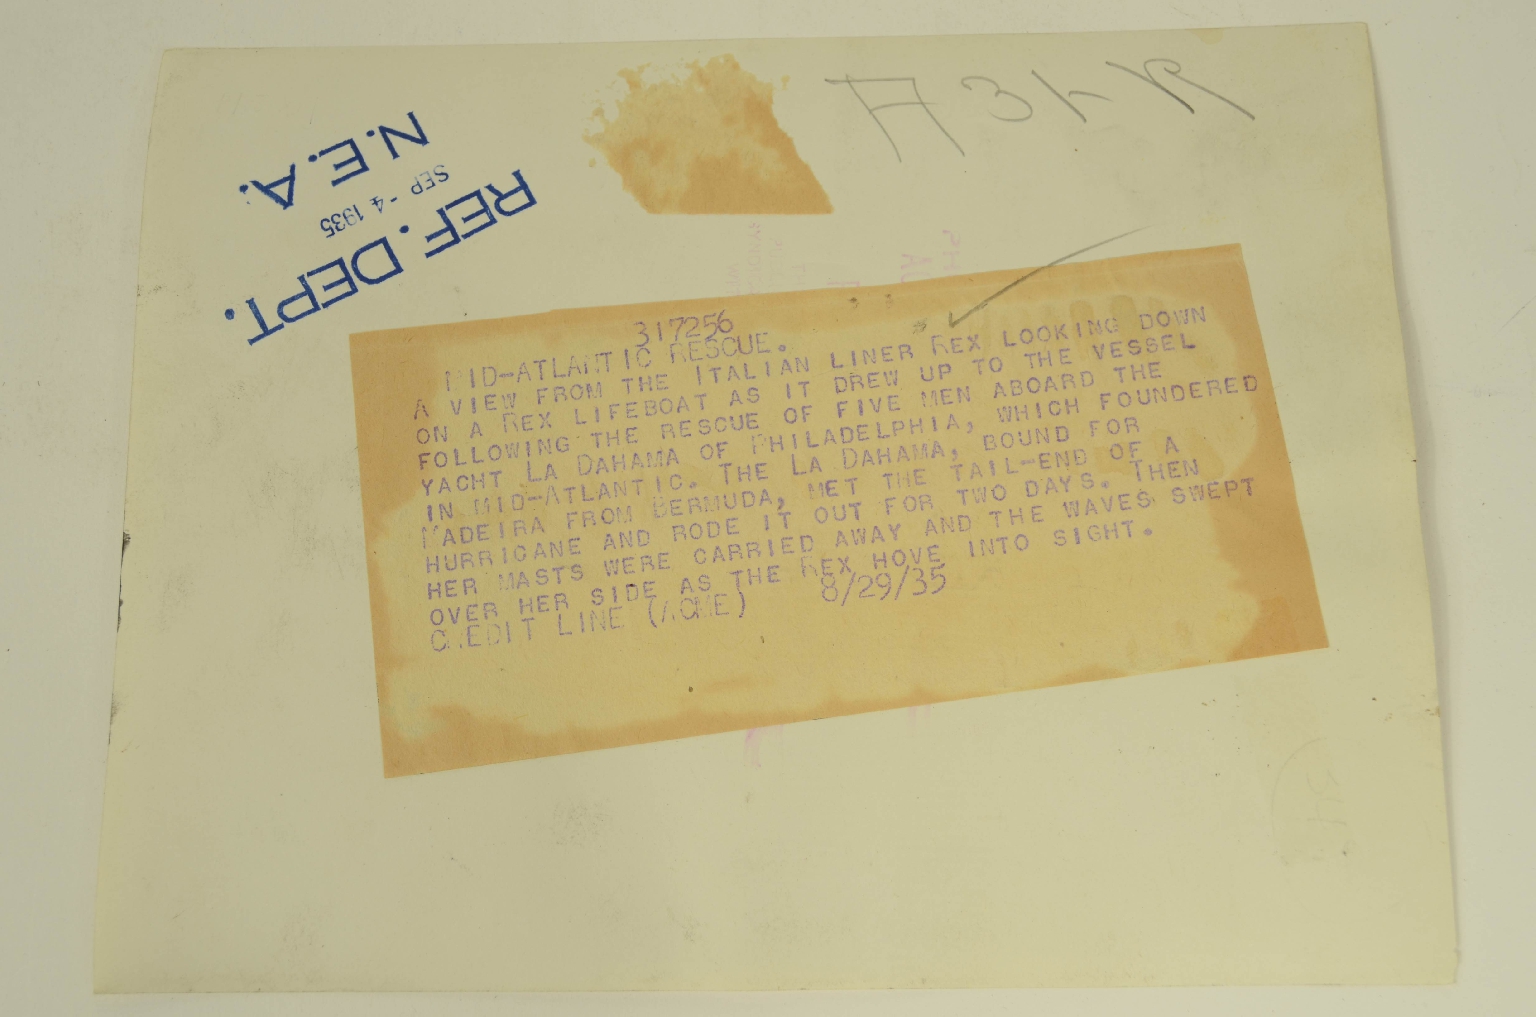 N.E.A.
SEP -4 1935
REF. DEPT.
317256
MID-ATLANTIC RESCUE.
A VIEW FROM THE ITALIAN LINER REX LOOKING DOWN
ON A REX LIFEBOAT AS IT DREW UP TO THE VESSEL
FOLLOWING THE RESCUE OF FIVE MEN ABOARD THE
YACHT LA DAHAMA OF PHILADELPHIA, WHICH FOUNDERED
IN MID-ATLANTIC. THE LA DAHAMA, BOUND FOR
MADEIRA FROM BERMUDA, MET THE TAIL-END OF A
HURRICANE AND RODE IT OUT FOR TWO DAYS. THEN
HER MASTS WERE CARRIED AWAY AND THE WAVES SWEPT
OVER HER SIDE AS THE REX HOVE INTO SIGHT.
CREDIT LINE (ACME) 8/29/35